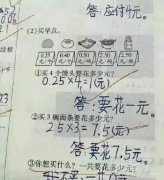 答:应付4元。
(2)买早点。
0.25元/个 0.40元/个 0.50元/个 2.50元/碗 0.50元/个
①买4个馒头要花多少元?
0.25×4=1(元)
答:要花一元。
②买3碗面条要花多少元?
2.5×3=7.5(元)
答:要花7.5元。
③你想买什么?一共要花多少元?